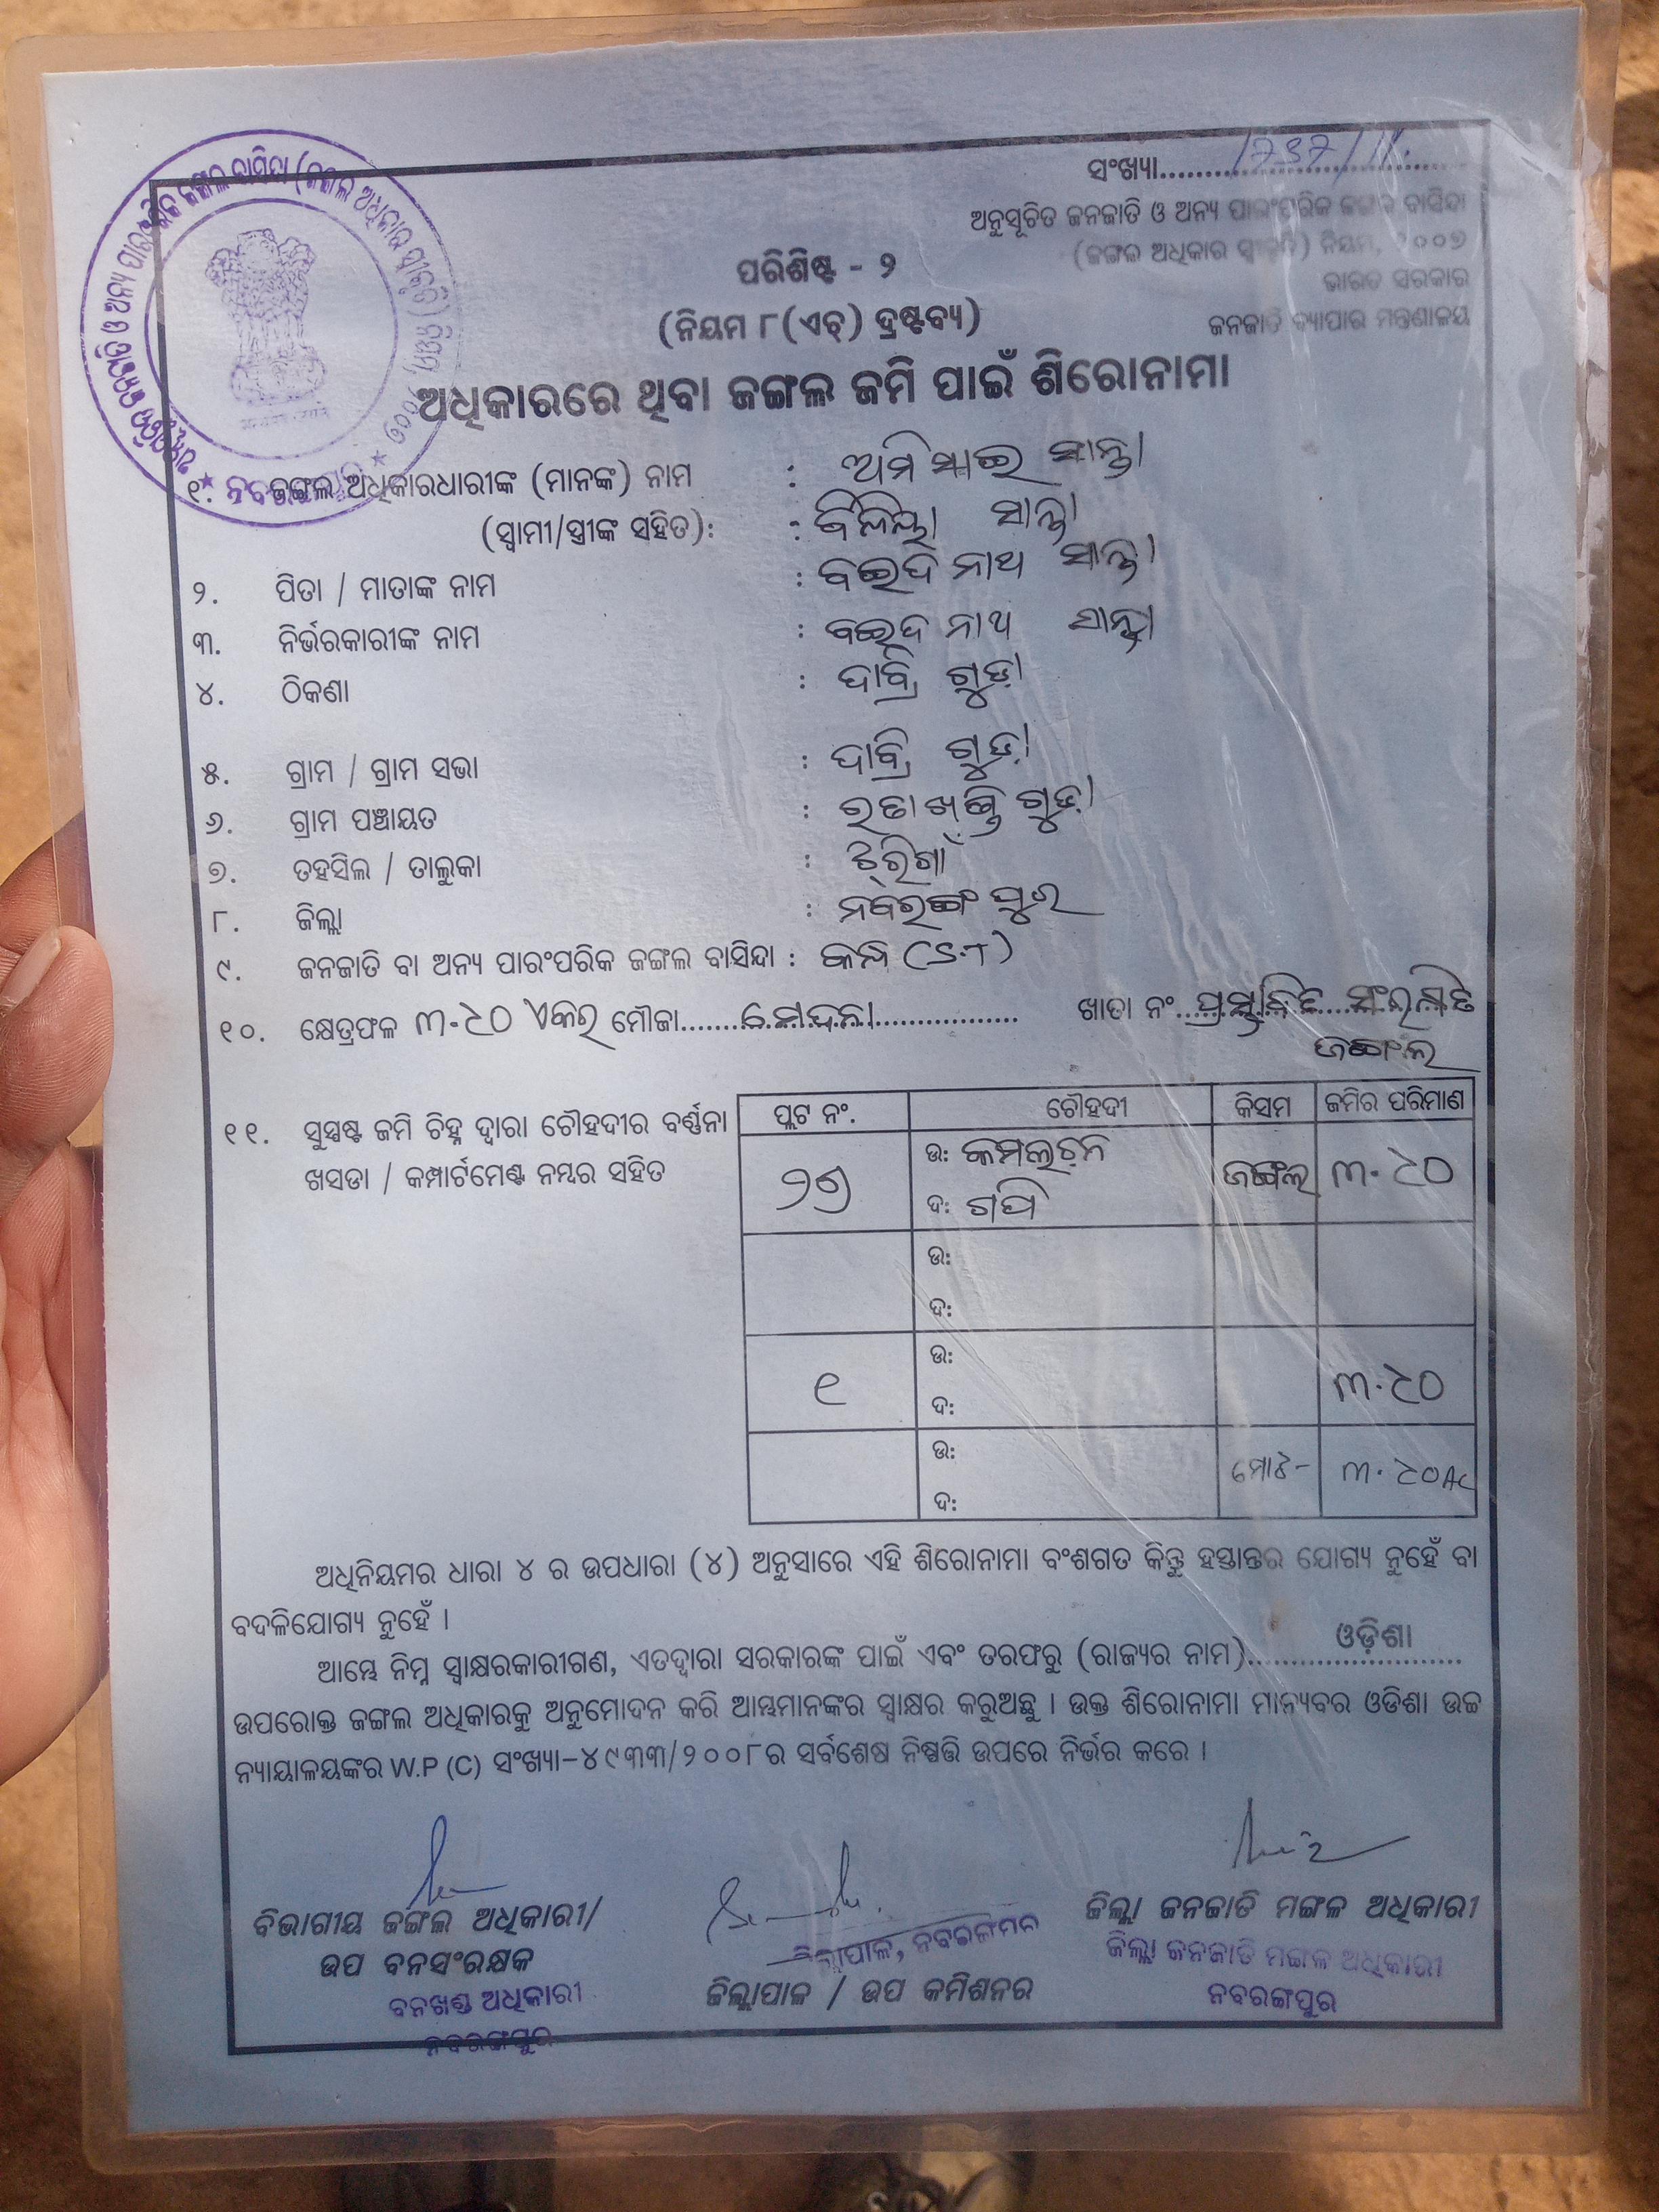 ସଂଖ୍ୟା..............................
ଅନୁସୂଚିତ ଜନଜାତି ଓ ଅନ୍ୟ ପାରଂପରିକ ଜଙ୍ଗଲ ବାସିନ୍ଦା
(ଜଙ୍ଗଲ ଅଧିକାର ସ୍ୱୀକୃତି) ନିୟମ, ୨୦୦୭
ଭାରତ ସରକାର
ଜନଜାତି ବ୍ୟାପାର ମନ୍ତ୍ରଣାଳୟ
ପରିଶିଷ୍ଟ - ୨
(ନିୟମ ୮(ଏଚ୍) ଦ୍ରଷ୍ଟବ୍ୟ)
ଅଧିକାରରେ ଥିବା ଜଙ୍ଗଲ ଜମି ପାଇଁ ଶିରୋନାମା
୧. ଜଙ୍ଗଲ ଅଧିକାରଧାରୀଙ୍କ (ମାନଙ୍କ) ନାମ : ସାନ୍ତା
(ସ୍ୱାମୀ/ସ୍ତ୍ରୀଙ୍କ ସହିତ): : ସାନ୍ତା
୨. ପିତା / ମାତାଙ୍କ ନାମ : ବଇଦି ନାଥ ସାନ୍ତା
୩. ନିର୍ଭରକାରୀଙ୍କ ନାମ : ବଇଦ ନାଥ ସାନ୍ତା
୪. ଠିକଣା : ଦାବ୍ରି ଗୁଡ଼ା
୫. ଗ୍ରାମ / ଗ୍ରାମ ସଭା : ଦାବ୍ରି ଗୁଡ଼ା
୬. ଗ୍ରାମ ପଞ୍ଚାୟତ : ଗୁଡ଼ା
୭. ତହସିଲ / ତାଲୁକା :
୮. ଜିଲ୍ଲା : ନବରଙ୍ଗ ପୁର
୯. ଜନଜାତି ବା ଅନ୍ୟ ପାରଂପରିକ ଜଙ୍ଗଲ ବାସିନ୍ଦା : କନ୍ଧ (S.T)
୧୦. କ୍ଷେତ୍ରଫଳ ୩.୬୦ ଏକର ମୌଜା.................. ଖାତା ନଂ ପ୍ରସ୍ତାବିତ ସଂରକ୍ଷିତ
ଜଙ୍ଗଲ
୧୧. ସୁସ୍ପଷ୍ଟ ଜମି ଚିହ୍ନ ଦ୍ୱାରା ଚୌହଦୀର ବର୍ଣ୍ଣନା
ଖସଡା / କମ୍ପାର୍ଟମେଣ୍ଟ ନମ୍ବର ସହିତ
ପ୍ଲଟ ନଂ. ଚୌହଦୀ କିସମ ଜମିର ପରିମାଣ
୨୭ ଉ: କମଲଚନ ଜଙ୍ଗଲ ୩.୬୦
ଦ: ଗପି
ଉ:
ଦ:
୧ ଉ: ୩.୬୦
ଦ:
ଉ: ମୋଟ- ୩.୬୦Ac
ଦ:
ଅଧିନିୟମର ଧାରା ୪ ର ଉପଧାରା (୪) ଅନୁସାରେ ଏହି ଶିରୋନାମା ବଂଶଗତ କିନ୍ତୁ ହସ୍ତାନ୍ତର ଯୋଗ୍ୟ ନୁହେଁ ବା
ବଦଳିଯୋଗ୍ୟ ନୁହେଁ ।
ଆମ୍ଭେ ନିମ୍ନ ସ୍ୱାକ୍ଷରକାରୀଗଣ, ଏତଦ୍ୱାରା ସରକାରଙ୍କ ପାଇଁ ଏବଂ ତରଫରୁ (ରାଜ୍ୟର ନାମ)....ଓଡ଼ିଶା....
ଉପରୋକ୍ତ ଜଙ୍ଗଲ ଅଧିକାରକୁ ଅନୁମୋଦନ କରି ଆମ୍ଭମାନଙ୍କର ସ୍ୱାକ୍ଷର କରୁଅଛୁ । ଉକ୍ତ ଶିରୋନାମା ମାନ୍ୟବର ଓଡିଶା ଉଚ୍ଚ
ନ୍ୟାୟାଳୟଙ୍କର W.P (C) ସଂଖ୍ୟା-୪୯୩୩/୨୦୦୮ର ସର୍ବଶେଷ ନିଷ୍ପତ୍ତି ଉପରେ ନିର୍ଭର କରେ ।
ବିଭାଗୀୟ ଜଙ୍ଗଲ ଅଧିକାରୀ/
ଉପ ବନସଂରକ୍ଷକ
ବନଖଣ୍ଡ ଅଧିକାରୀ
ନବରଙ୍ଗପୁର
ଜିଲ୍ଲାପାଳ,
ଜିଲ୍ଲାପାଳ / ଉପ କମିଶନର
ଜିଲ୍ଲା ଜନଜାତି ମଙ୍ଗଳ ଅଧିକାରୀ
ଜିଲ୍ଲା ଜନଜାତି ମଙ୍ଗଳ ଅଧିକାରୀ
ନବରଙ୍ଗପୁର